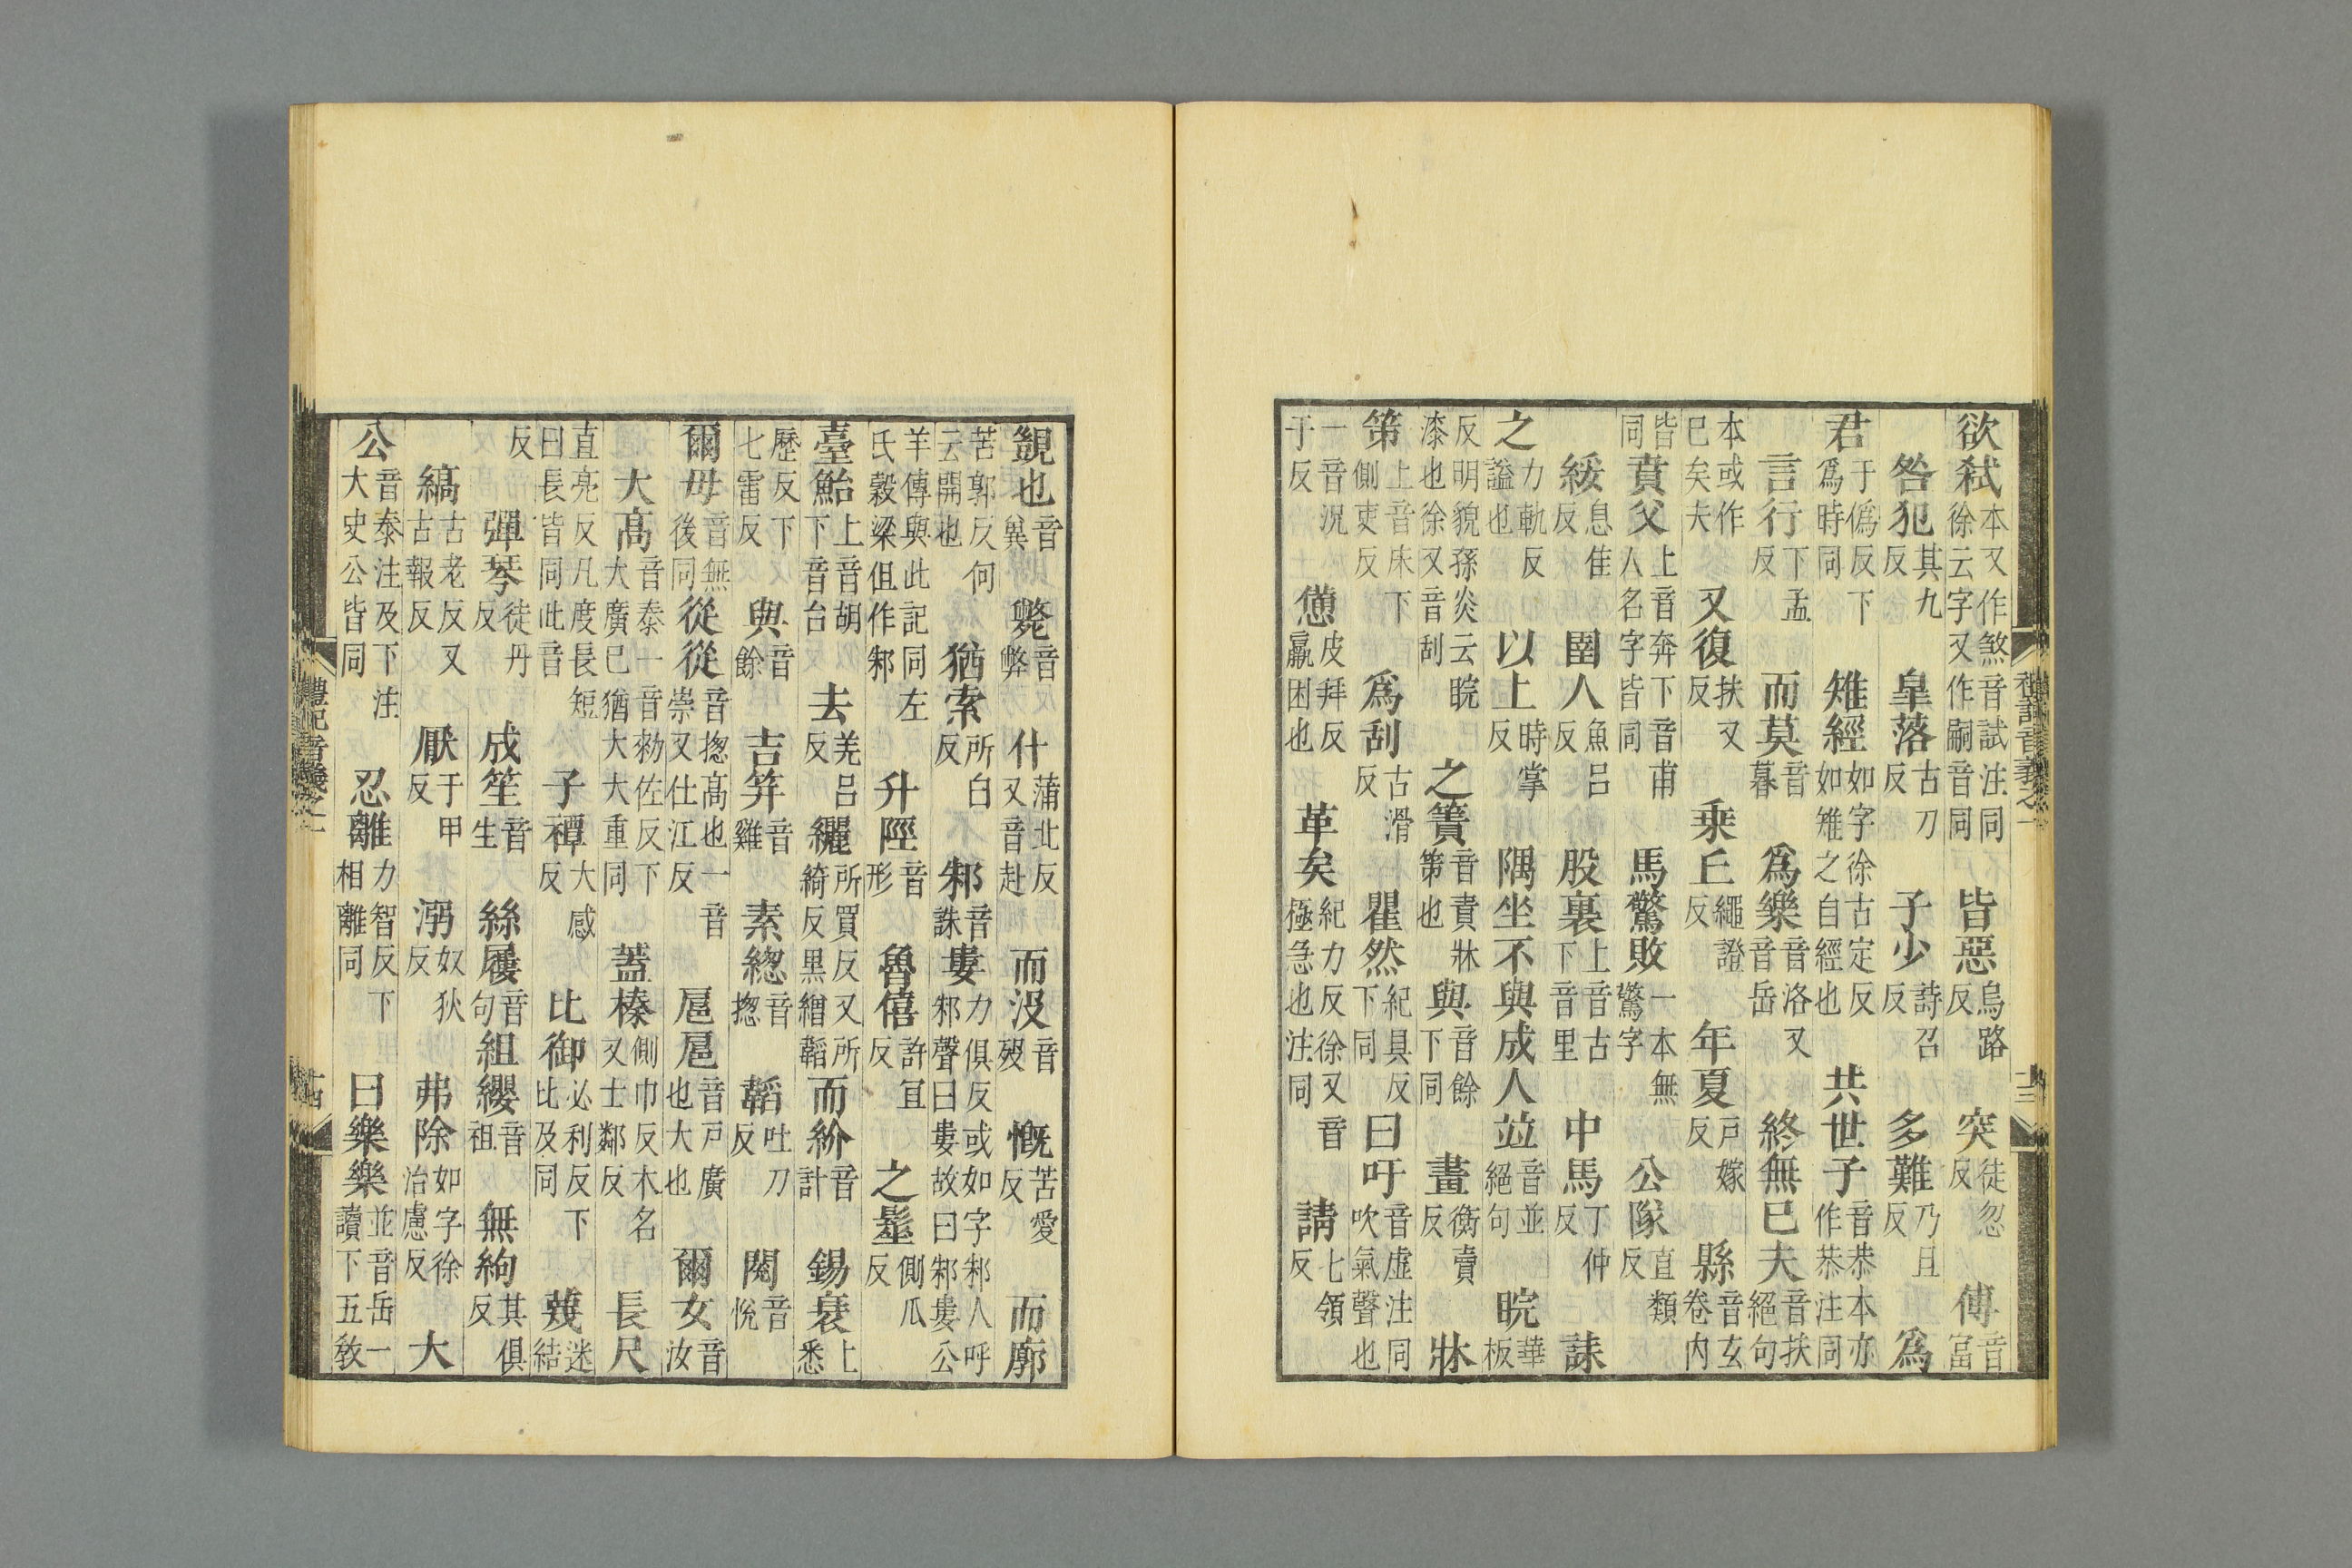 欲弒本又作煞音試注同徐云字又作嗣音同　皆惡烏路反　突徒忽反　傅音富
咎犯其九反　皐落古刀反　子少詩召反　多難乃旦反　為
君于僞反下為時同　雉經如字徐古定反如雉之自經也　共世子音恭本亦作恭注同
言行下孟反　而莫音暮　為樂音洛又音岳　終無已夫音扶絕句
本或作已矣夫　又復扶又反　乗丘繩證反　年夏戶嫁反　縣音玄卷內
皆同　賁父上音奔下音甫人名字皆同　馬驚敗一本無驚字　公隊直類反
綏息隹反　圉人魚呂反　股裏上音古下音里　中馬丁仲反　誄
之力軌反謚也　以上時掌反　隅坐不與成人竝音並絕句　睆華板
反明貌孫炎云睆漆也徐又音刮　之簀音責牀第也　與音餘下同　畫衡賣反　牀
第上音床下側吏反　為刮古滑反　瞿然紀具反下同　曰吁音虛注同吹氣聲也
一音況于反　憊皮拜反羸困也　革矣紀力反徐又音極急也注同　請七領反
禮記音義之一　十三
覬也音兾　斃音弊　什蒲北反又音赴　而沒音歿　慨苦愛反　而廓
苦郭反何云開也　猶索所白反　邾音誅　婁力俱反或如字邾人呼邾聲曰婁故曰邾婁公
羊傳與此記同左氏穀梁但作邾　升陘音形　魯僖許宜反　之髽側瓜反
臺鮐上音胡下音台　去羌呂反　纚所買反又所綺反黑繒韜　而紒音計　錫衰上悉
歷反下七雷反　與音餘　吉筓音雞　素緫音揔　韜吐刀反　閱音悅
爾毋音無後同　從從音揔高也一音崇又仕江反　扈扈音戶廣也大也　爾女音汝
大高音泰一音勑佐反下大廣已猶大大重同　蓋榛側巾反木名又士鄰反　長尺
直亮反凡度長短曰長皆同此音　子禫大感反　比御必利反下比及同　蔑迷結
反　彈琴徒丹反　成笙音生　絲屨音句　組纓音祖　無絇其俱反
縞古老反又古報反　厭于甲反　溺奴狄反　弗除如字徐治慮反　大
公音泰注及下注大史公皆同　忍離力智反下相離同　曰樂樂並音岳一讀下五敎
禮記音義之一　十四